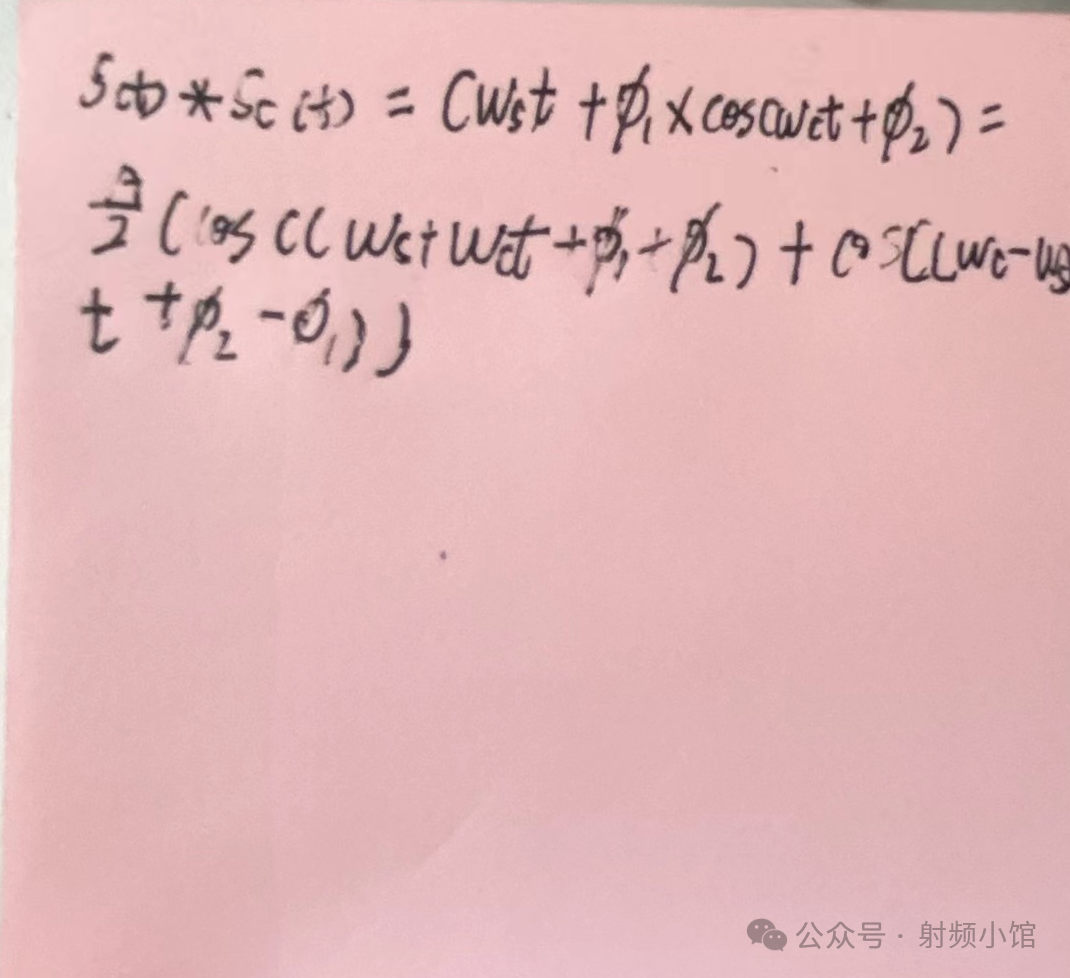 S(t) * Sc(t) = (Wst + ϕ₁ x cos(Wct + ϕ₂) =
a/2 (cos ((Ws+Wct + ϕ₁ + ϕ₂) + cos((Wc-Ws
t + ϕ₂ - ϕ₁))
公众号 · 射频小馆